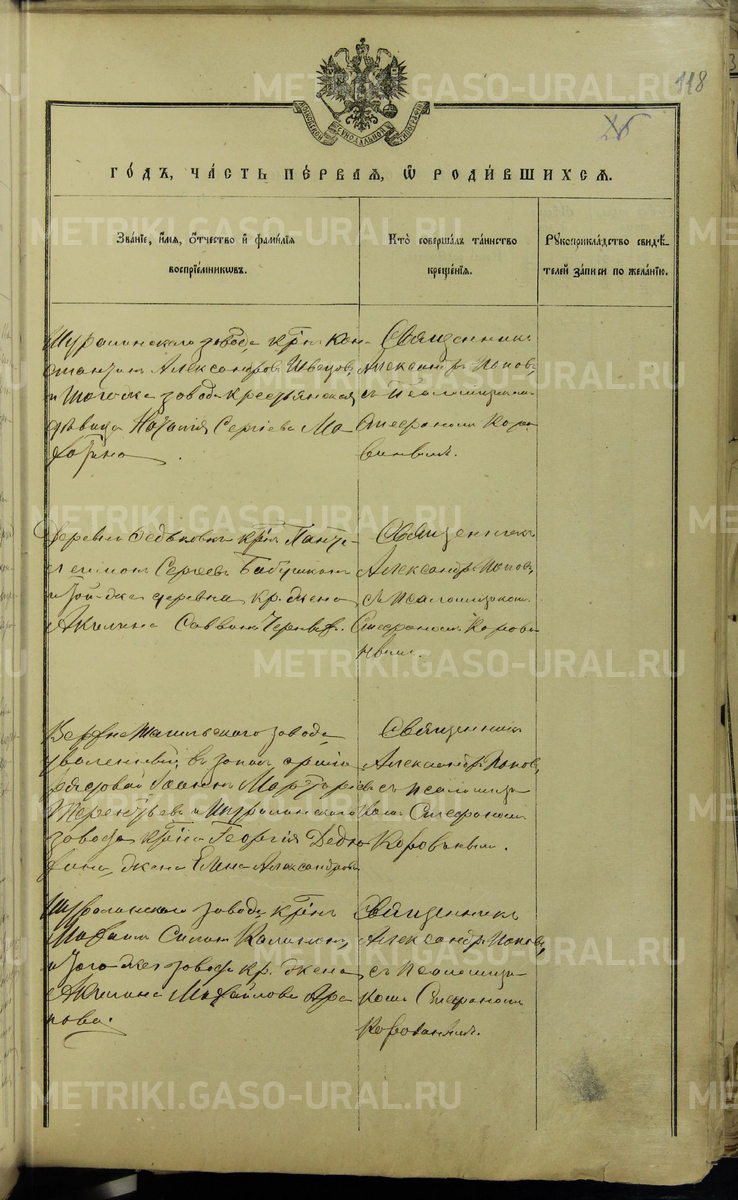 118
26
ГО́ДЪ, ЧА́СТЬ ПЕ́РВАЯ, Ѡ РОДИ́ВШИХСЯ.
Зва́нїе, и҆́мя, ѻ҆́тчество и҆ фами́лїя
воспрїе́мниковъ.
Кто̀ соверша́лъ та́инство
креще́нїя.
Рꙋкоприкла́дство свидѣ́-
телей за́писи по жела́нїю.
Шуралинскаго завода, кр҃нъ Кон-
стантинъ Александровъ Швецовъ
и того же завода крестьянская
дѣвица Наталія Сергіева Ма-
Священникъ
Александръ Поповъ
съ псаломщикомъ
Стефаномъ Коро-
Деревни Федьковки кр҃нъ Панте-
леимонъ Сергѣевъ Бабушкинъ
и той-же деревни, кр. жена
Акилина Саввина
Священникъ
Александръ Поповъ,
съ псаломщикомъ
Стефаномъ Корова-
Верхнетагильскаго завода
уволенный въ запасъ арміи
рядовой Іоаннъ
Терентьевъ и Шуралинскаго
завода кр҃на Георгія Дедю-
хина, жена Елена Александрова
Священникъ
Александръ Поповъ,
съ псаломщи-
комъ Стефаномъ
Шуралинскаго завода кр҃нъ
Силинъ
и того же завода кр. жена
Акилина Михайлова Ара-
пова.
Священникъ
Александръ Поповъ,
съ псаломщи-
комъ Стефаномъ
METRIKI.GASO-URAL.RU